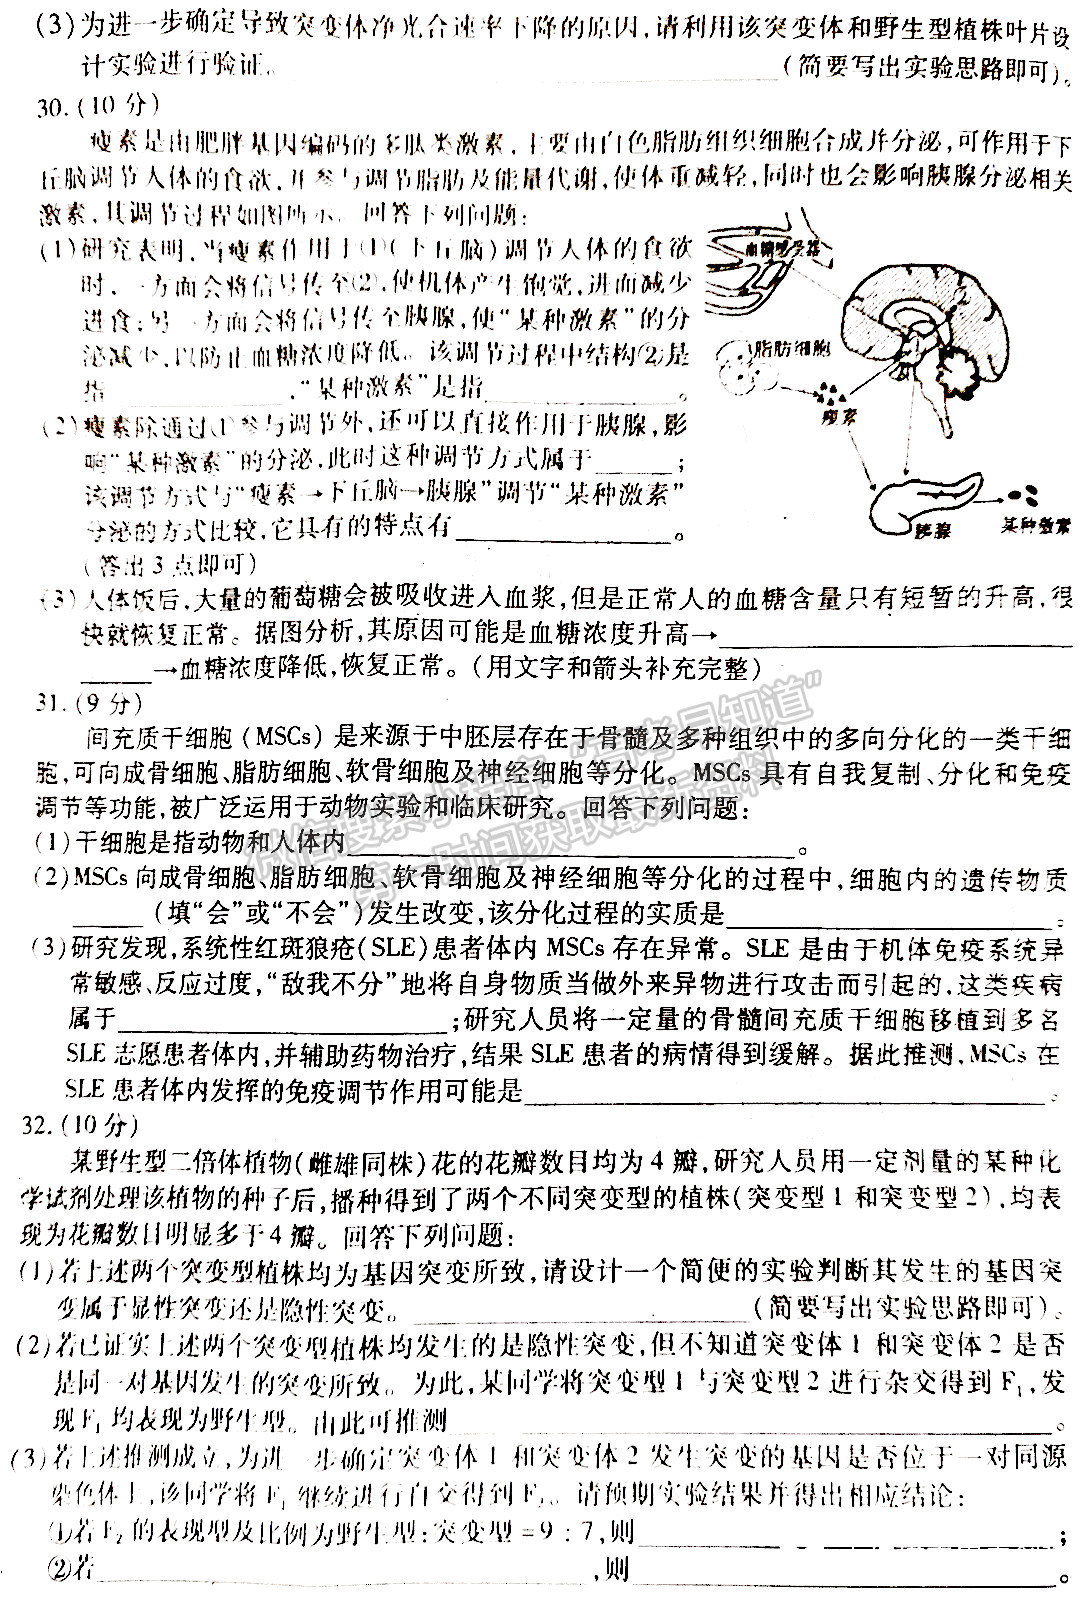 (3)为进一步确定导致突变体净光合速率下降的原因,请利用该突变体和野生型植株叶片设
计实验进行验证。(简要写出实验思路即可)。
30.(10分)
瘦素是由肥胖基因编码的多肽类激素,主要由白色脂肪组织细胞合成并分泌,可作用于下
丘脑调节人体的食欲,并参与调节脂肪及能量代谢,使体重减轻,同时也会影响胰腺分泌相关
激素,其调节过程如图所示。回答下列问题:
(1)研究表明,当瘦素作用于①(下丘脑)调节人体的食欲
时,一方面会将信号传至②,使机体产生饱觉,进而减少
进食;另一方面会将信号传至胰腺,使“某种激素”的分
泌减少,以防止血糖浓度降低。该调节过程中结构②是
指________,“某种激素”是指________。
(2)瘦素除通过①参与调节外,还可以直接作用于胰腺,影
响“某种激素”的分泌,此时这种调节方式属于______;
该调节方式与“瘦素→下丘脑→胰腺”调节“某种激素”
分泌的方式比较,它具有的特点有________。
(答出3点即可)
血糖感受器
脂肪细胞
瘦素
胰腺
某种激素
(3)人体饭后,大量的葡萄糖会被吸收进入血浆,但是正常人的血糖含量只有短暂的升高,很
快就恢复正常。据图分析,其原因可能是血糖浓度升高→________
____→血糖浓度降低,恢复正常。(用文字和箭头补充完整)
31.(9分)
间充质干细胞(MSCs)是来源于中胚层存在于骨髓及多种组织中的多向分化的一类干细
胞,可向成骨细胞、脂肪细胞、软骨细胞及神经细胞等分化。MSCs具有自我复制、分化和免疫
调节等功能,被广泛运用于动物实验和临床研究。回答下列问题:
(1)干细胞是指动物和人体内________。
(2)MSCs向成骨细胞、脂肪细胞、软骨细胞及神经细胞等分化的过程中,细胞内的遗传物质
____(填“会”或“不会”)发生改变,该分化过程的实质是________。
(3)研究发现,系统性红斑狼疮(SLE)患者体内MSCs存在异常。SLE是由于机体免疫系统异
常敏感、反应过度,“敌我不分”地将自身物质当做外来异物进行攻击而引起的,这类疾病
属于________;研究人员将一定量的骨髓间充质干细胞移植到多名
SLE志愿患者体内,并辅助药物治疗,结果SLE患者的病情得到缓解。据此推测,MSCs在
SLE患者体内发挥的免疫调节作用可能是________。
32.(10分)
某野生型二倍体植物(雌雄同株)花的花瓣数目均为4瓣,研究人员用一定剂量的某种化
学试剂处理该植物的种子后,播种得到了两个不同突变型的植株(突变型1和突变型2),均表
现为花瓣数目明显多于4瓣。回答下列问题:
(1)若上述两个突变型植株均为基因突变所致,请设计一个简便的实验判断其发生的基因突
变属于显性突变还是隐性突变。________(简要写出实验思路即可)。
(2)若已证实上述两个突变型植株均发生的是隐性突变,但不知道突变体1和突变体2是否
是同一对基因发生的突变所致。为此,某同学将突变型1与突变型2进行杂交得到F₁,发
现F₁均表现为野生型。由此可推测________。
(3)若上述推测成立,为进一步确定突变体1和突变体2发生突变的基因是否位于一对同源
染色体上,该同学将F₁继续进行自交得到F₂。请预期实验结果并得出相应结论:
①若F₂的表现型及比例为野生型:突变型=9:7,则________;
②若________,则________。
微信搜索小程序“高考早知道”
第一时间获取最新资料